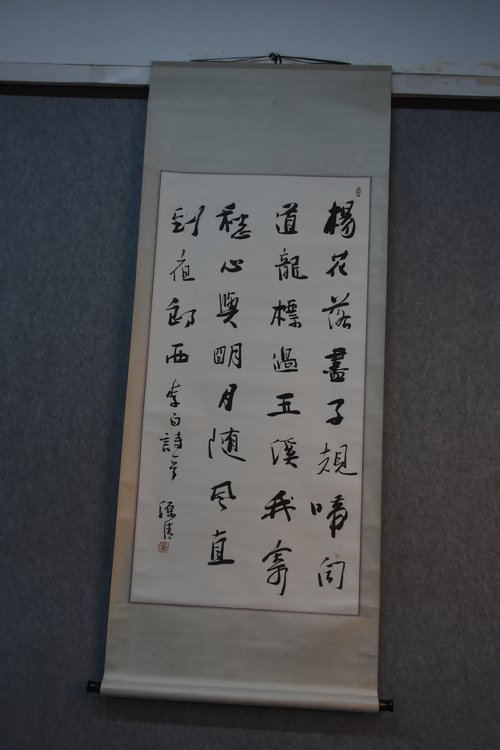 楊花落盡子規啼聞
道龍標過五溪我寄
愁心與明月随風直
到夜郎西 李白詩一首